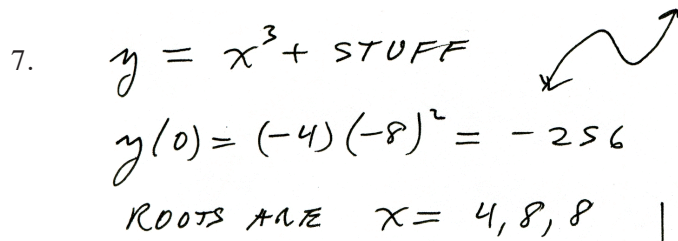 7. y = x³ + STUFF
y(0) = (-4)(-8)² = -256
ROOTS ARE x = 4, 8, 8